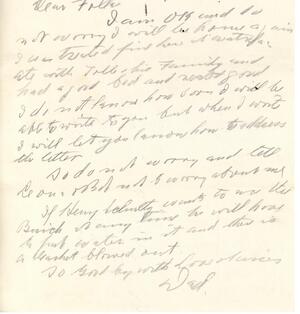 Dear Folks
I am OK and do
not worry I will be home again
I was treated fine here it
ate with Family and
had a good bed and
I do not know how soon I will be
able to write to you but when I write
I will let you know how to address
the letter.
So do not worry and tell
not to worry about me
If Henry wants to use the
Buick any time he will have
to put water in it and there is
a gasket blowed out.
So Good by with
Dad.